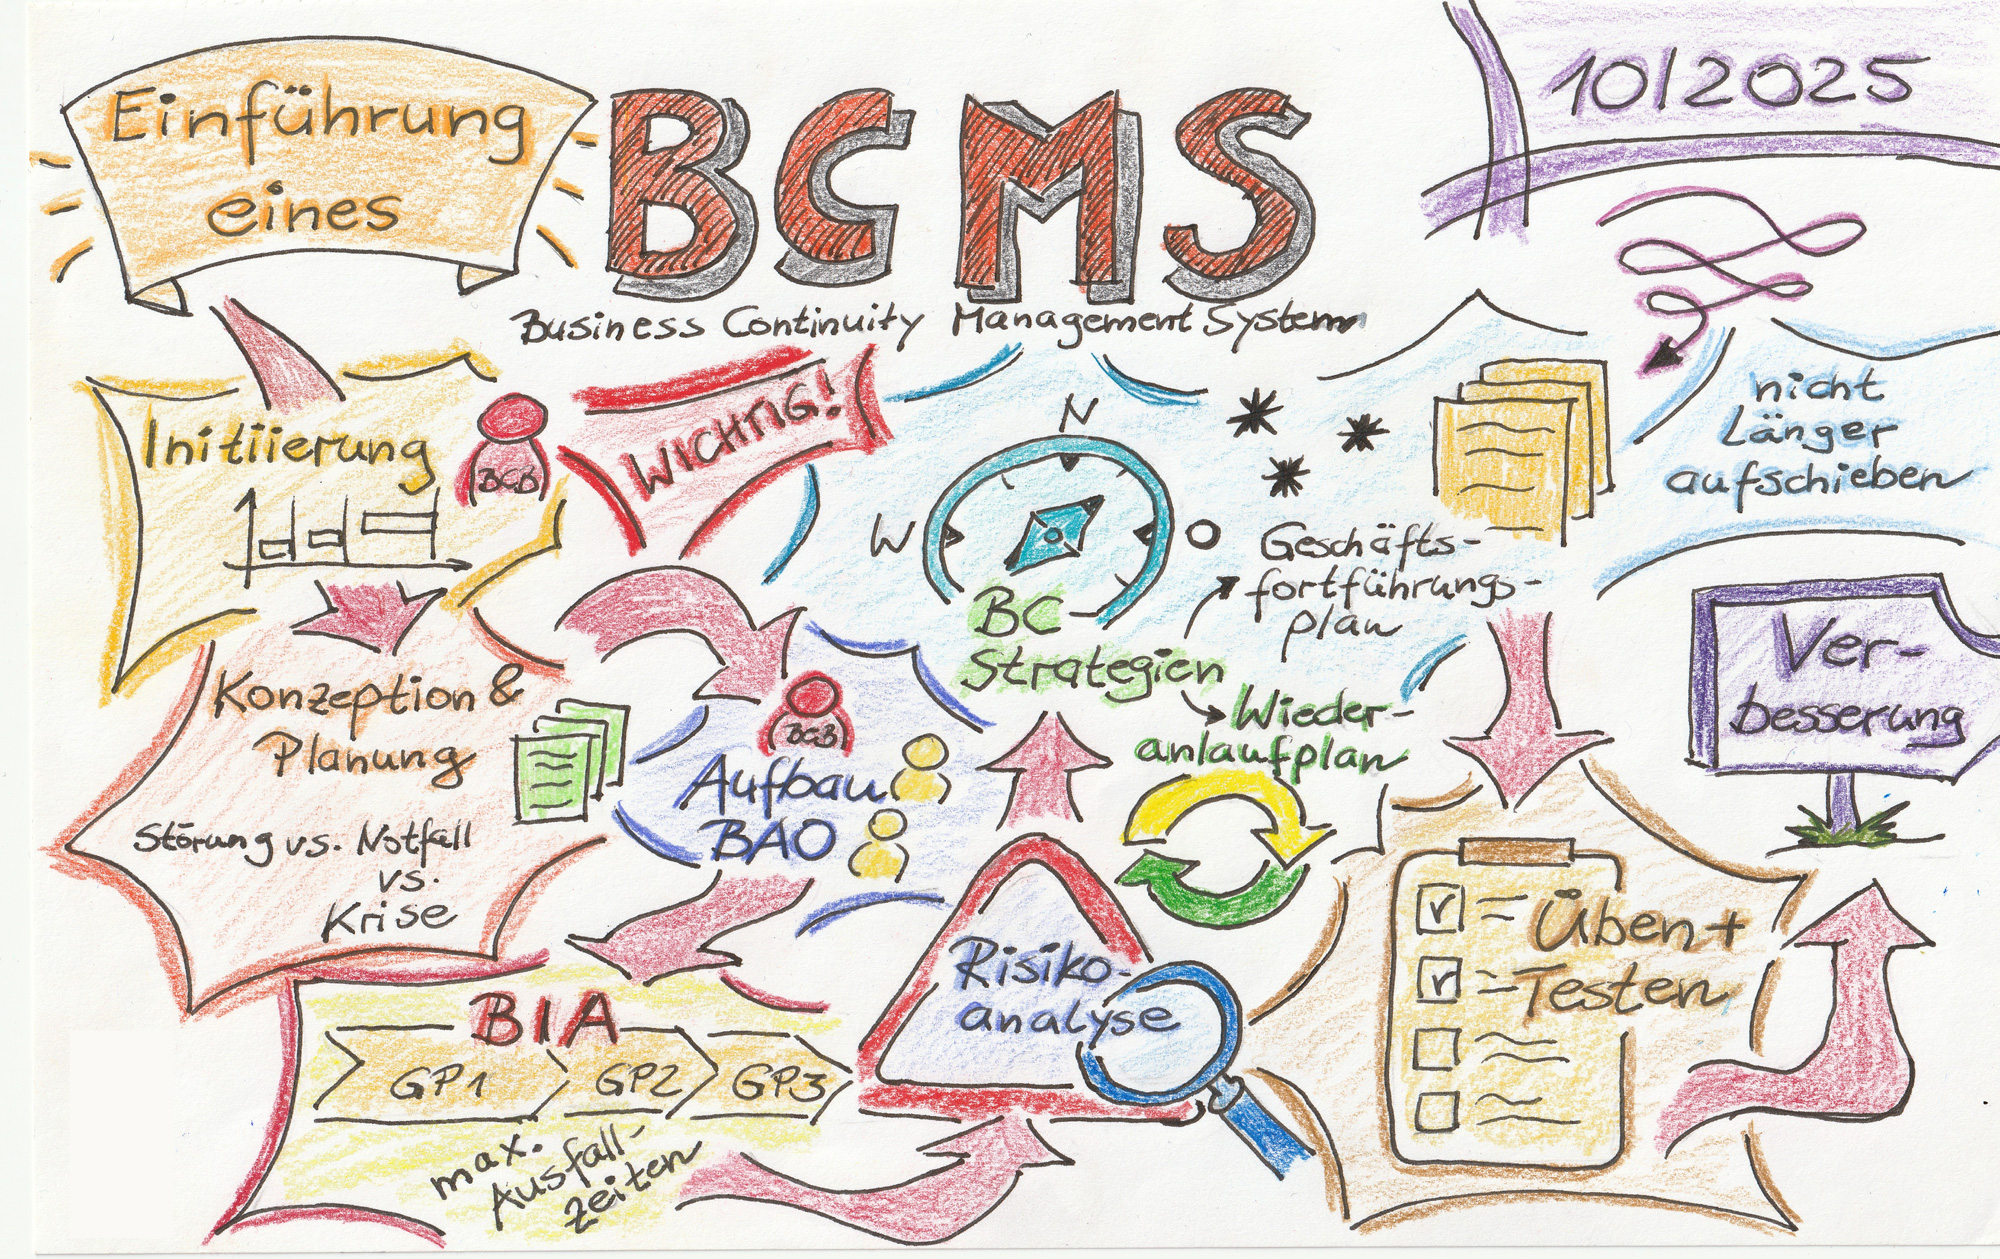 Einführung
eines
BCMS
Business Continuity Management System
10/2025
Initiierung
BCB
WICHTIG!
Konzeption &
Planung
Störung vs. Notfall
vs.
Krise
BCB
Aufbau
BAO
BIA
GP1 GP2 GP3
max.
Ausfall-
zeiten
Risiko-
analyse
N
W O
BC
Strategien
Geschäfts-
fortführungs-
plan
Wieder-
anlaufplan
nicht
Länger
aufschieben
Üben +
Testen
Ver-
besserung